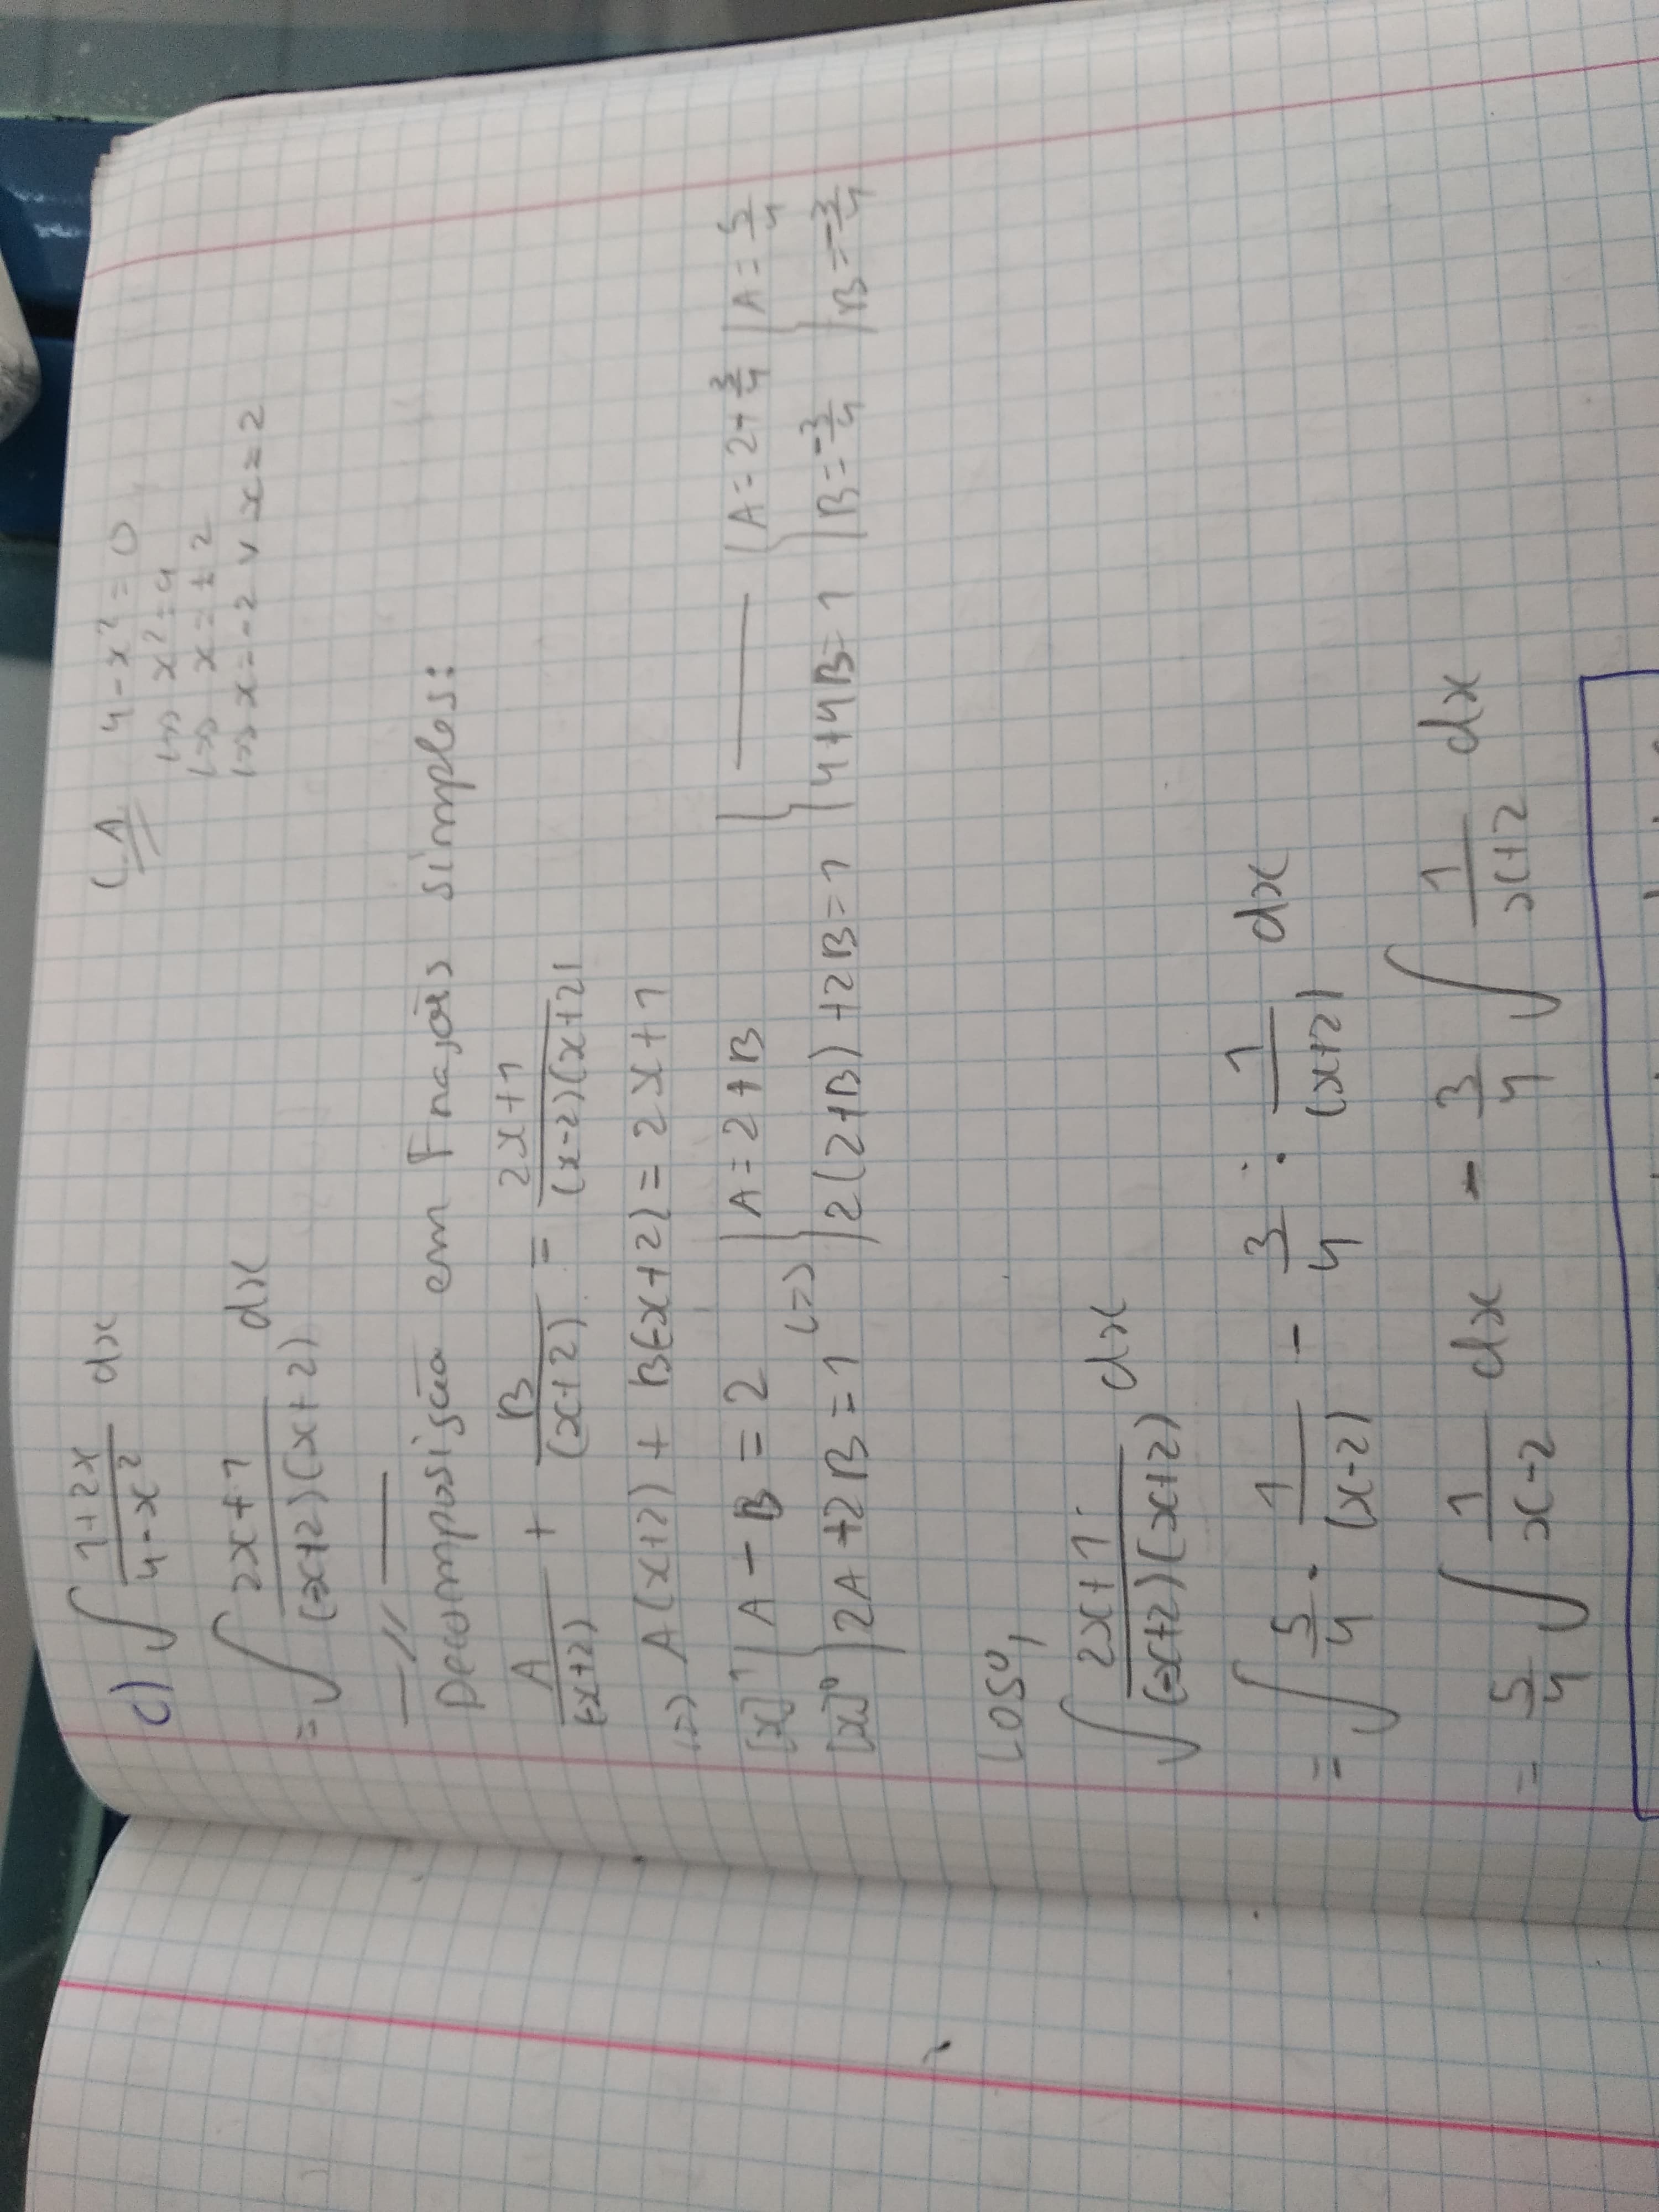 c) ∫ (1+2x)/(4-x²) dx
C.A. 4-x²=0
<=> x²=4
<=> x=±2
<=> x=-2 ∨ x=2
= ∫ (2x+1)/((-x+2)(x+2)) dx
—//—
Decomposição em Frações simples:
A/(-x+2) + B/(x+2) = (2x+1)/((x-2)(x+2)
<=> A(x+2) + B(-x+2) = 2x+1
[x]¹ | A - B = 2 <=> | A = 2+B { —— | A = 2-3/4 | A = 5/4
[x]⁰ | 2A + 2B = 1 | 2(2+B) + 2B = 1 | 4+4B = 1 | B = -3/4 | B = -3/4
Logo,
∫ (2x+1)/((-x+2)(x+2)) dx
= ∫ 5/4 · 1/(x-2) - 3/4 · 1/(x+2) dx
= 5/4 ∫ 1/(x-2) dx - 3/4 ∫ 1/(x+2) dx